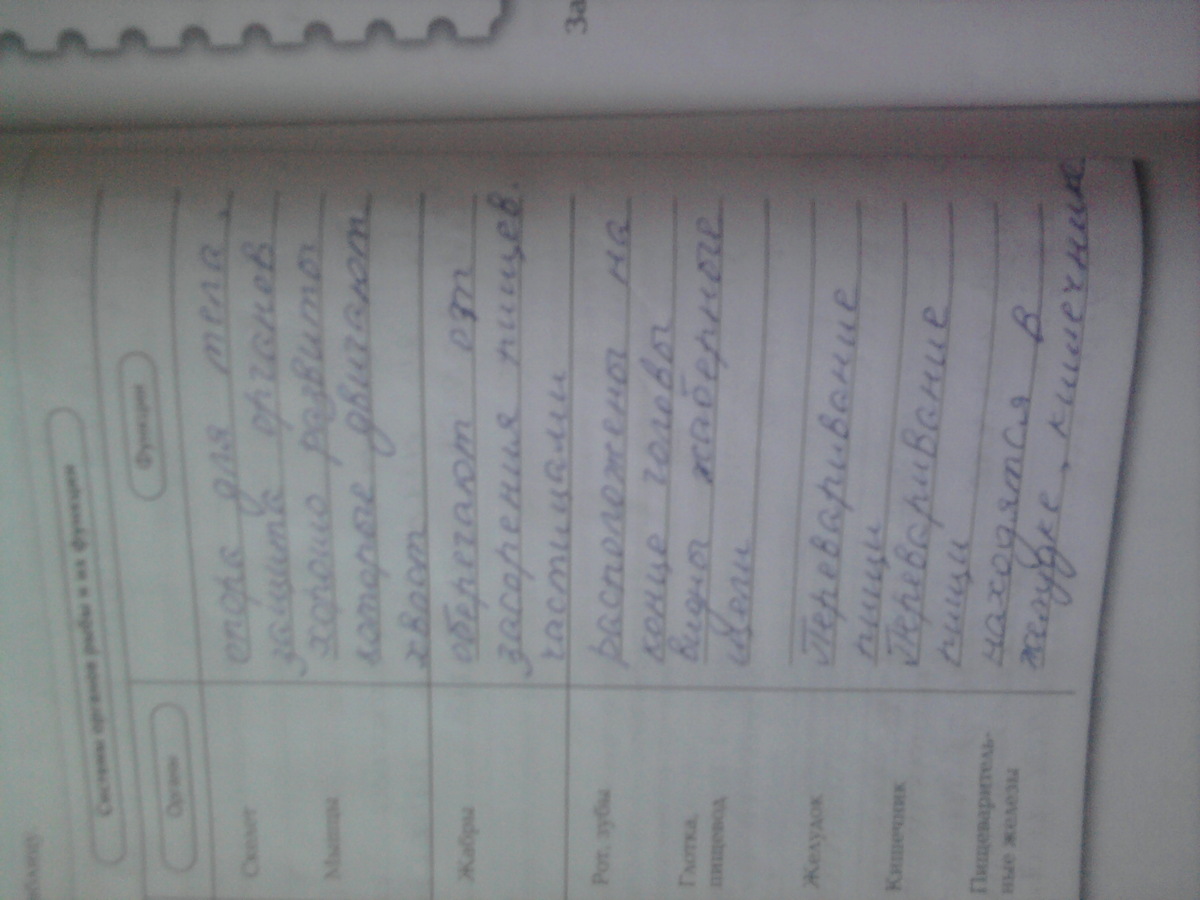 За
таблицу.
Системы органов рыбы и их функции
Органы
Функции
Скелет
опора для тела,
защита органов
Мышцы
хорошо развиты
которые двигают
хвост
Жабры
оберегают от
засорения пищев.
частицами
Рот, зубы
расположены на
конце головы
Глотка,
пищевод
видны жаберные
щели
Желудок
Переваривание
пищи
Кишечник
Переваривание
пищи
Пищеваритель-
ные железы
находятся в
желудке, кишечнике